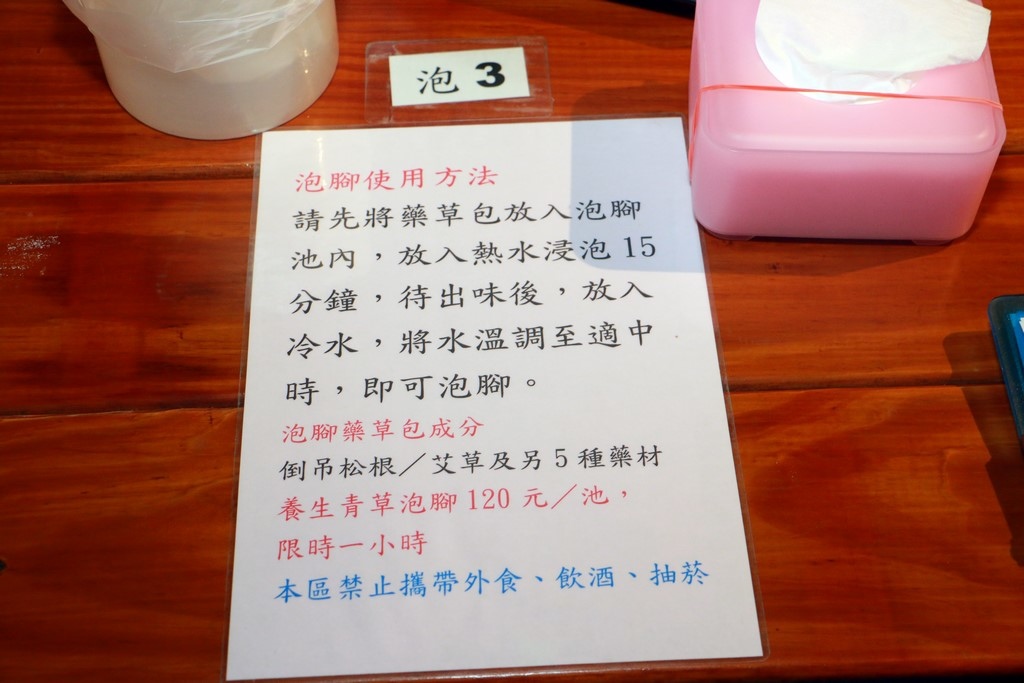 泡 3
泡腳使用方法
請先將藥草包放入泡腳
池內，放入熱水浸泡 15
分鐘，待出味後，放入
冷水，將水溫調至適中
時，即可泡腳。
泡腳藥草包成分
倒吊松根／艾草及另 5 種藥材
養生青草泡腳 120 元／池，
限時一小時
本區禁止攜帶外食、飲酒、抽菸